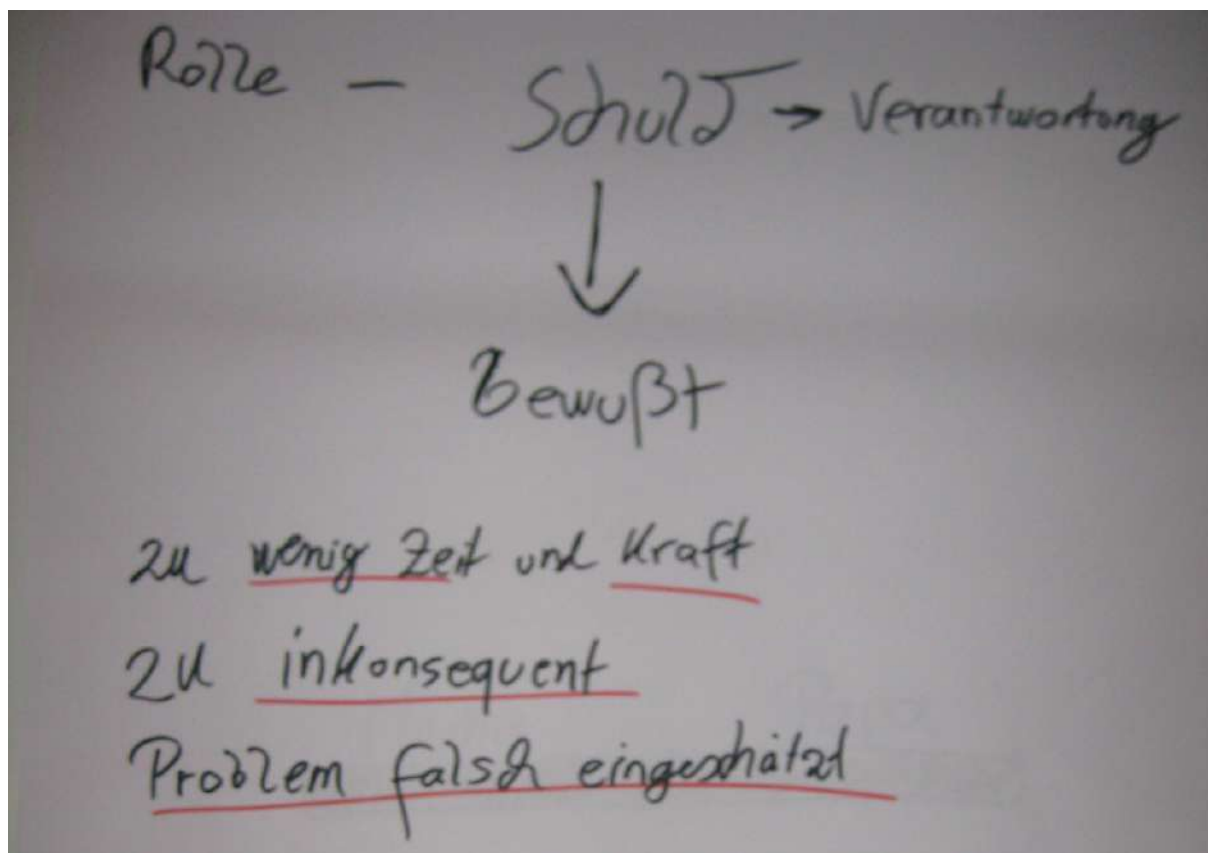 Rolle – Schuld → Verantwortung
↓
Bewußt
zu wenig Zeit und Kraft
zu inkonsequent
Problem falsch eingeschätzt